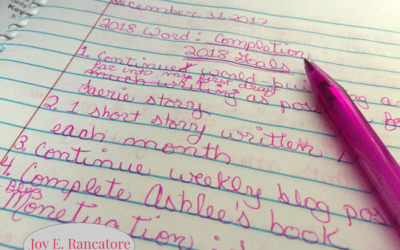 December 31, 2017
2018 Word: Completion
2018 Goals
1. Continue world-building as
far into my first draft
writing as pos
faerie story.
2. 1 short story written
each month
3. Continue weekly blog po
4. Complete Ashlee's book
Blog
Monetisation
Joy E. Rancatore